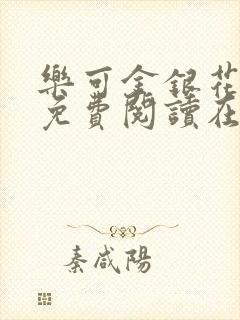 樂可金銀花
免費閱讀在
秦咸陽